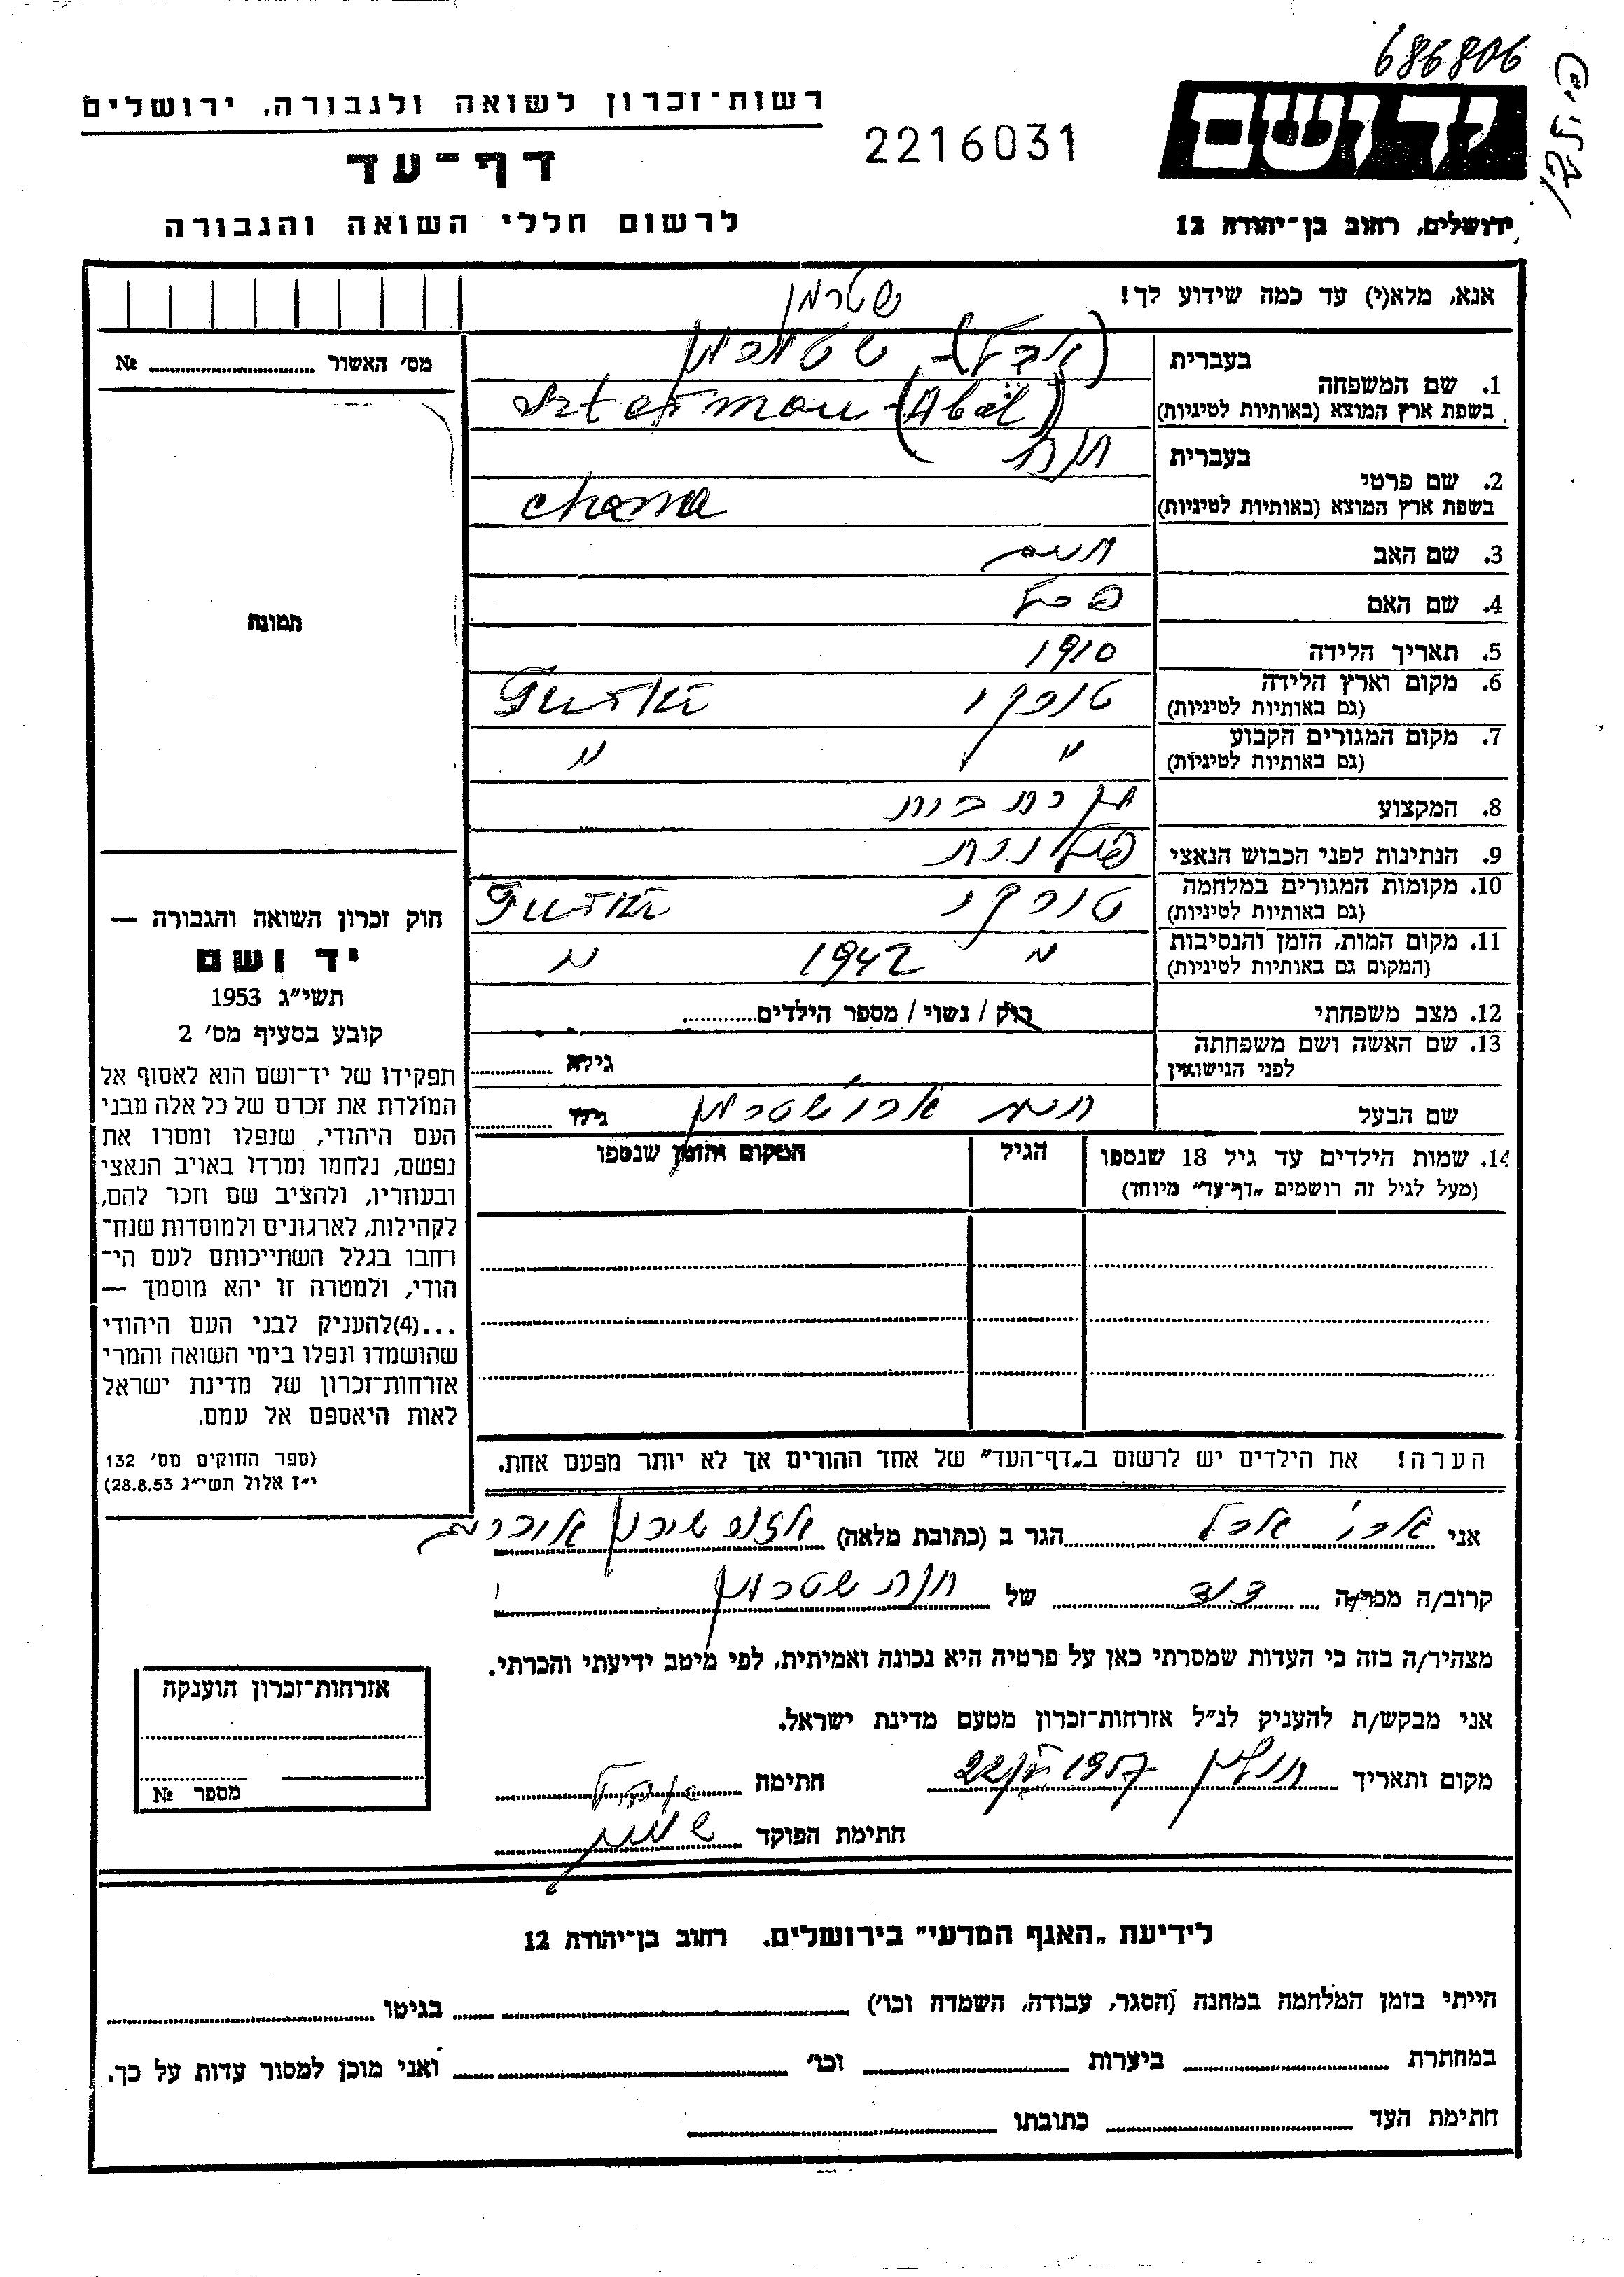 686806
רשות־זכרון לשואה ולגבורה, ירושלים
2216031
יד ושם
דף־עד
לרשום חללי השואה והגבורה
ירושלים, רחוב בן־יהודה 12
אנא, מלא(י) עד כמה שידוע לך!
שטרמן
מס׳ האשור № ..........
בעברית
1. שם המשפחה
בשפת ארץ המוצא (באותיות לטיניות)
Szterman (Abel)
בעברית חנה
2. שם פרטי
בשפת ארץ המוצא (באותיות לטיניות) Chana
3. שם האב חיים
4. שם האם
5. תאריך הלידה 1910
6. מקום וארץ הלידה טורקי
(גם באותיות לטיניות)
7. מקום המגורים הקבוע " "
(גם באותיות לטיניות)
8. המקצוע עקרת בית
9. הנתינות לפני הכבוש הנאצי פולנית
10. מקומות המגורים במלחמה טורקי
(גם באותיות לטיניות)
11. מקום המות, הזמן והנסיבות " 1942 "
(המקום גם באותיות לטיניות)
12. מצב משפחתי רוק / נשוי / מספר הילדים ..........
13. שם האשה ושם משפחתה גילא ..........
לפני הנישואין
שם הבעל שטרמן גילו ..........
14. שמות הילדים עד גיל 18 שנספו הגיל המקום והזמן שנספו
(מעל לגיל זה רושמים „דף־עד” מיוחד)
תמונה
חוק זכרון השואה והגבורה —
יד ושם
תשי״ג 1953
קובע בסעיף מס׳ 2
תפקידו של יד־ושם הוא לאסוף אל
המולדת את זכרם של כל אלה מבני
העם היהודי, שנפלו ומסרו את
נפשם, נלחמו ומרדו באויב הנאצי
ובעוזריו, ולהציב שם וזכר להם,
לקהילות, לארגונים ולמוסדות שנח־
רחבו בגלל השתייכותם לעם הי־
הודי, ולמטרה זו יהא מוסמך —
...(4)להעניק לבני העם היהודי
שהושמדו ונפלו בימי השואה והמרי
אזרחות־זכרון של מדינת ישראל
לאות היאספם אל עמם.
(ספר החוקים מס׳ 132
י״ז אלול תשי״ג 28.8.53)
הערה! את הילדים יש לרשום ב„דף־העד” של אחד ההורים אך לא יותר מפעם אחת.
אני הגר ב (כתובת מלאה)
קרוב/ה מכר/ה דוד של חנה שטרמן
מצהיר/ה בזה כי העדות שמסרתי כאן על פרטיה היא נכונה ואמיתית, לפי מיטב ידיעתי והכרתי.
אני מבקש/ת להעניק לנ״ל אזרחות־זכרון מטעם מדינת ישראל.
מקום ותאריך חולון 1957 חתימה
חתימת הפוקד
אזרחות־זכרון הוענקה
מספר №
לידיעת „האגף המדעי” בירושלים. רחוב בן־יהודה 12
הייתי בזמן המלחמה במחנה (הסגר, עבודה, השמדה וכו׳) .......... בגיטו ..........
במחתרת .......... ביערות .......... וכו׳ .......... ואני מוכן למסור עדות על כך.
חתימת העד .......... כתובתו ..........